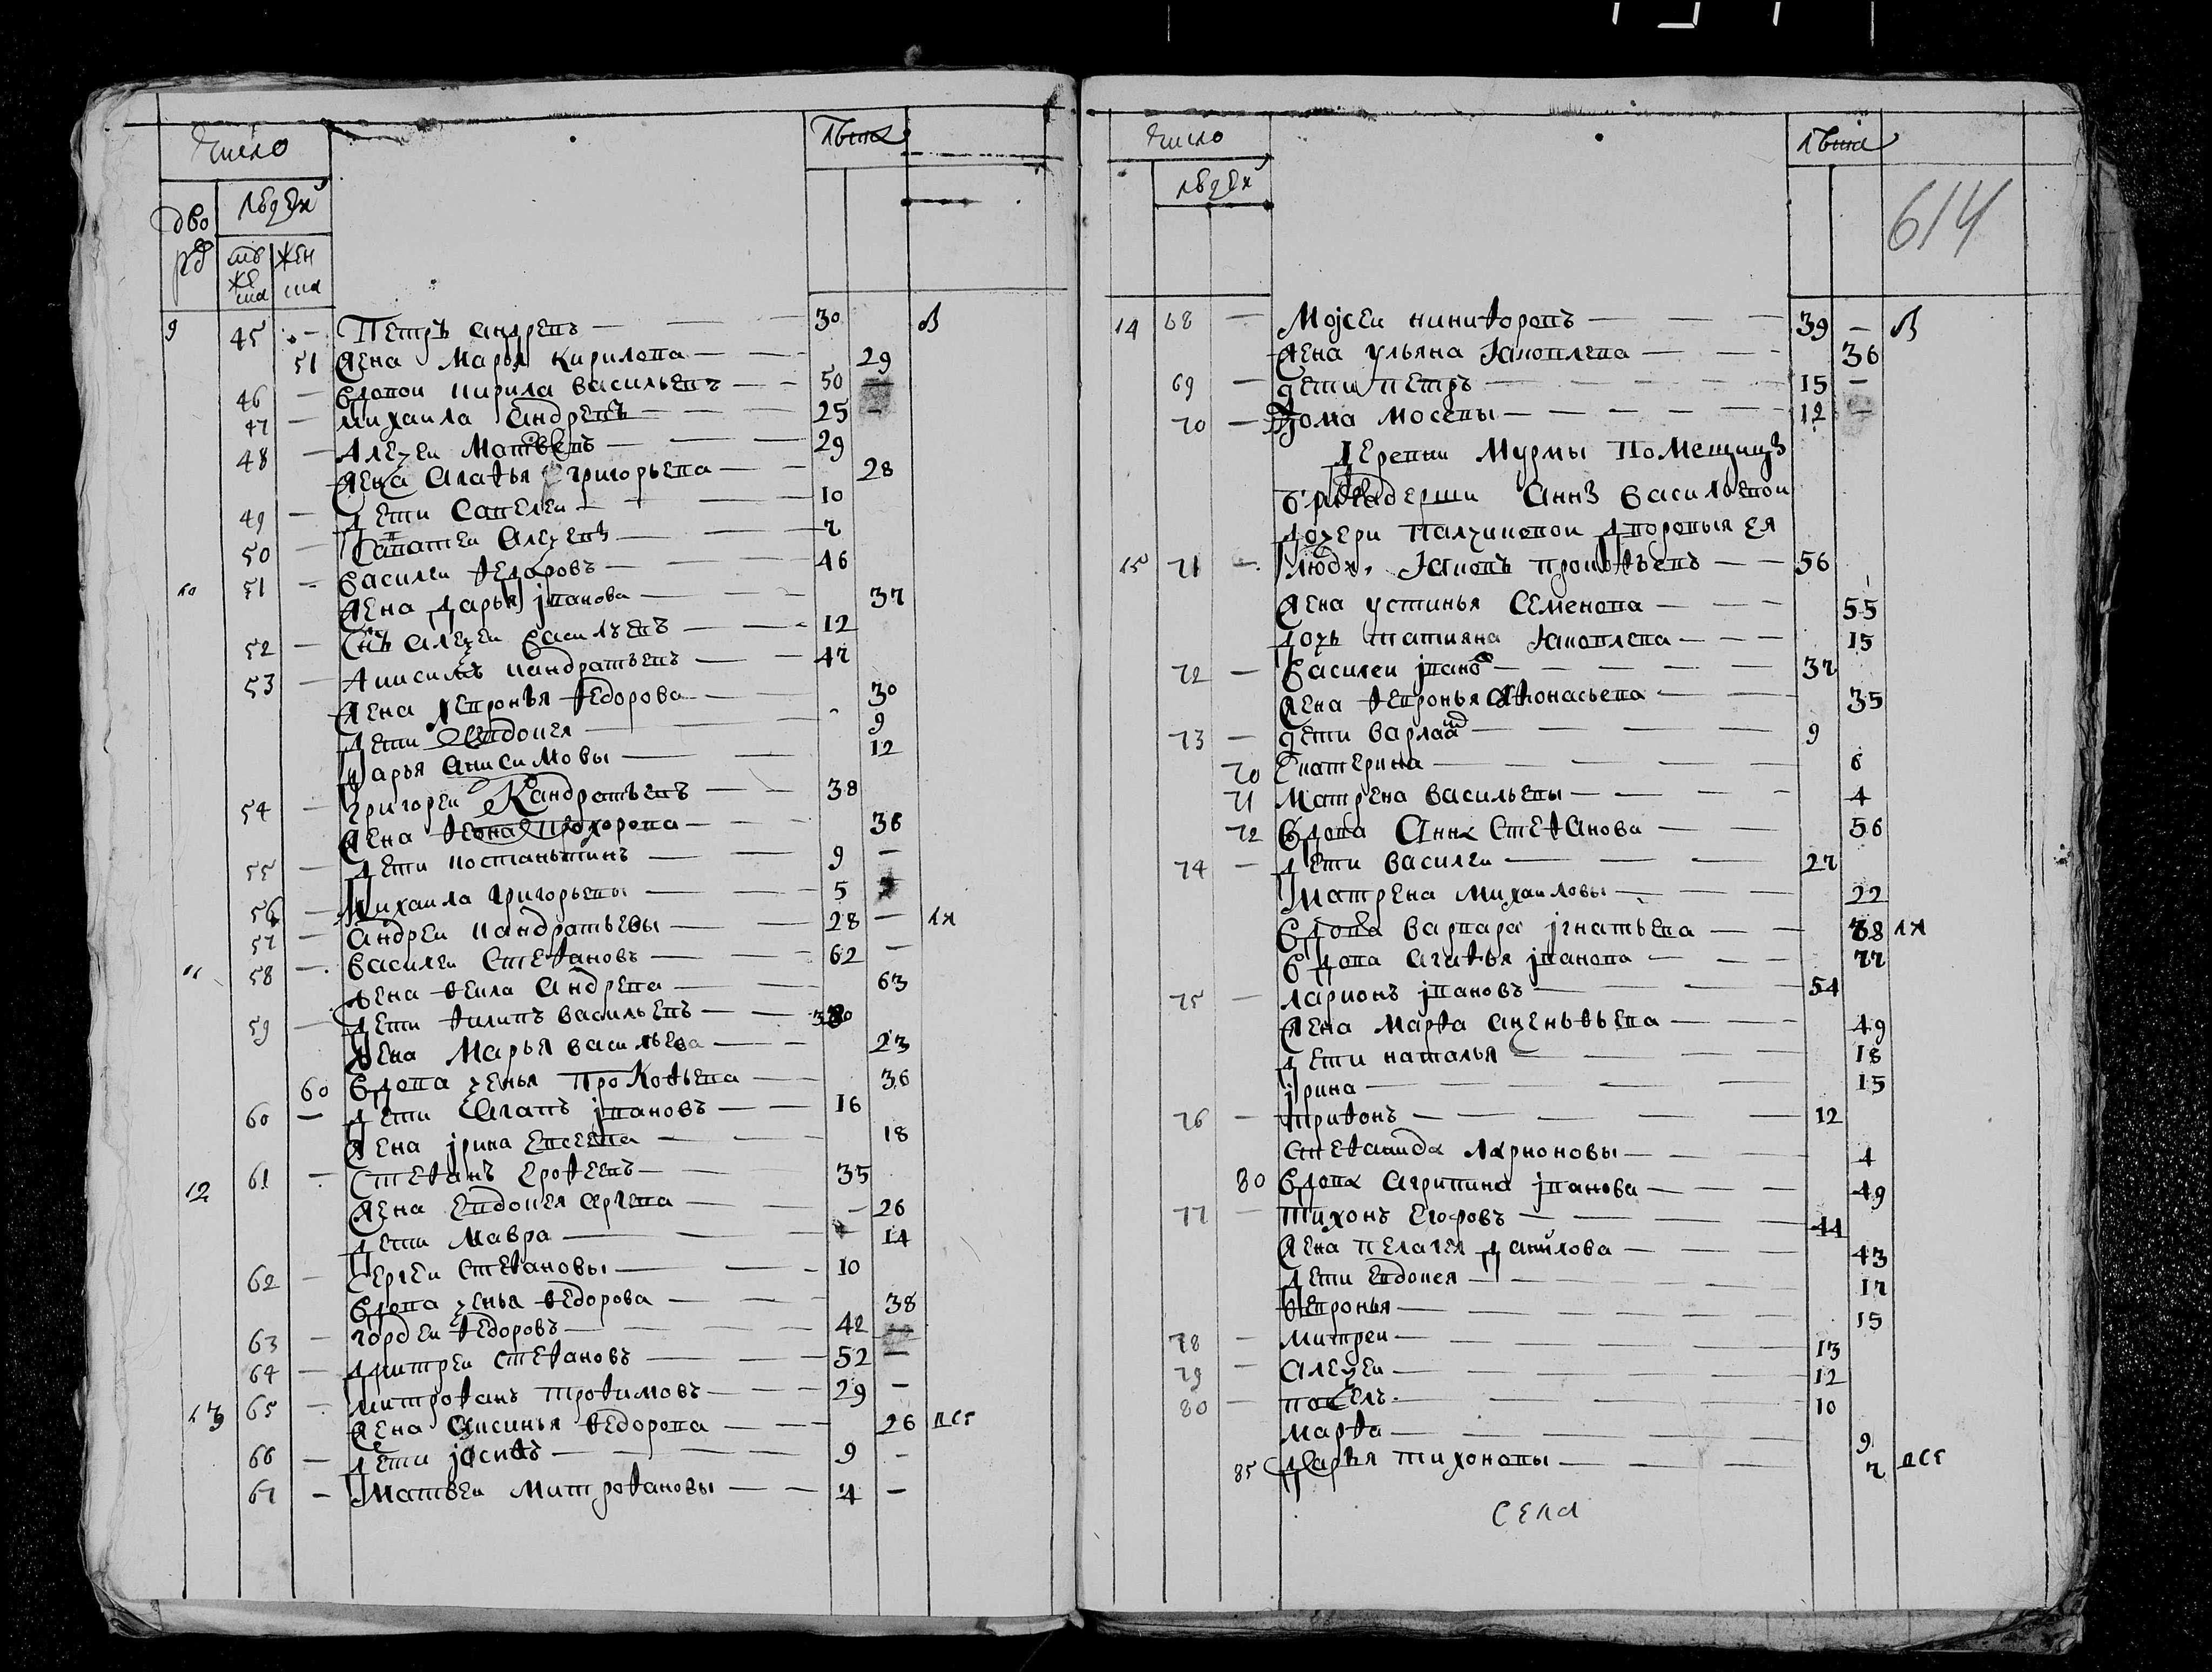 Число
Лѣта
дво
ровъ
людей
муже
ска
жен
ска
9 45 — Петръ Андревъ — 30 в
51 Жена Марья Кирилова — 29
46 — Вдовой Кирила Васильевъ — 50 —
47 — Михаила Андревъ — 25 —
48 — Алеѯей Матвевъ — 29
Жена Агафья Григорьева — 28
49 — Дети Савелей — 10
50 — Алеѯевы — 7
10 51 — Василей Федоровъ — 46
Жена Дарья Іванова — 37
52 — Снъ Алеѯей Васильевъ — 12
53 — Анисимъ Кандратьевъ — 47
Жена Февронья Федорова — 30
Дети Овдокея — 9
Дарья Анисимовы — 12
54 — Григорей Кандратьевъ — 38
Жена Прохорова — 36
55 — Дети Костаньтинъ — 9 —
56 — Михаила Григорьевы — 5
57 — Андрей Кандратьевы — 28 — лх
11 58 — Василей Стефановъ — 62 —
Жена Фекла Андрева — 63
59 — Дети Филипъ Васильевъ — 30
Жена Марья Васильева — 23
60 Вдова Ѯенья Прокофьева — 36
60 — Дети Агапъ Івановъ — 16
Жена Ірина Евсеева — 18
12 61 — Стефанъ Ерофеевъ — 35
Жена Евдокея Сергева — 26
Дети Мавра — 14
62 — Сергей Стефановы — 10
Вдова Ѯенья Федорова — 38
63 — Гордей Федоровъ — 42 —
64 — Дмитрей Стефановъ — 52 —
13 65 — Митрофанъ Трофимовъ — 29 —
Жена Аксинья Федорова — 26 все
66 — Дети Іосифъ — 9 —
67 — Матвей Митрофановы — 4 —
Число
Лѣта
людей
614
14 68 — Мојсей Никифоровъ — 39 — в
Жена Ульяна Яковлева — 36
69 — Дети Петръ — 15 —
70 — Фома Мосевы — 12 —
Деревни Мурмы Помещицѣ
Бригадерши Аннѣ Васильевой
Дочери Палчиковой Дворовыя ея
15 71 — Людх. Яковъ Прокофьевъ — 56
Жена Устинья Семенова — 55
Дочь Татияна Яковлева — 15
72 — Василей Івановъ — 37
Жена Февронья Афонасьева — 35
73 — Дети Варлам — 9
70 Екатерина — 6
71 Матрена Васильевы — 4
72 Вдова Анна Стефанова — 56
74 — Дети Василей — 27
Матрена Михаиловы — 22
Вдова Варвара Ігнатьева — 38 лх
Вдова Агафья Іванова — 77
75 — Ларионъ Івановъ — 54
Жена Марфа — 49
Дети Наталья — 18
Ірина — 15
76 — Трифонъ — 12
Стефанида Ларионовы — 4
80 Вдова Агрипина Іванова — 49
77 — Тихонъ Егоровъ — 44
Жена Пелагея Данилова — 43
Дети Евдокея — 17
Февронья — 15
78 — Митрей — 13
79 — Алеѯей — 12
80 — Павелъ — 10
Марфа — 9
85 Дарья Тихоновы — 7 все
села